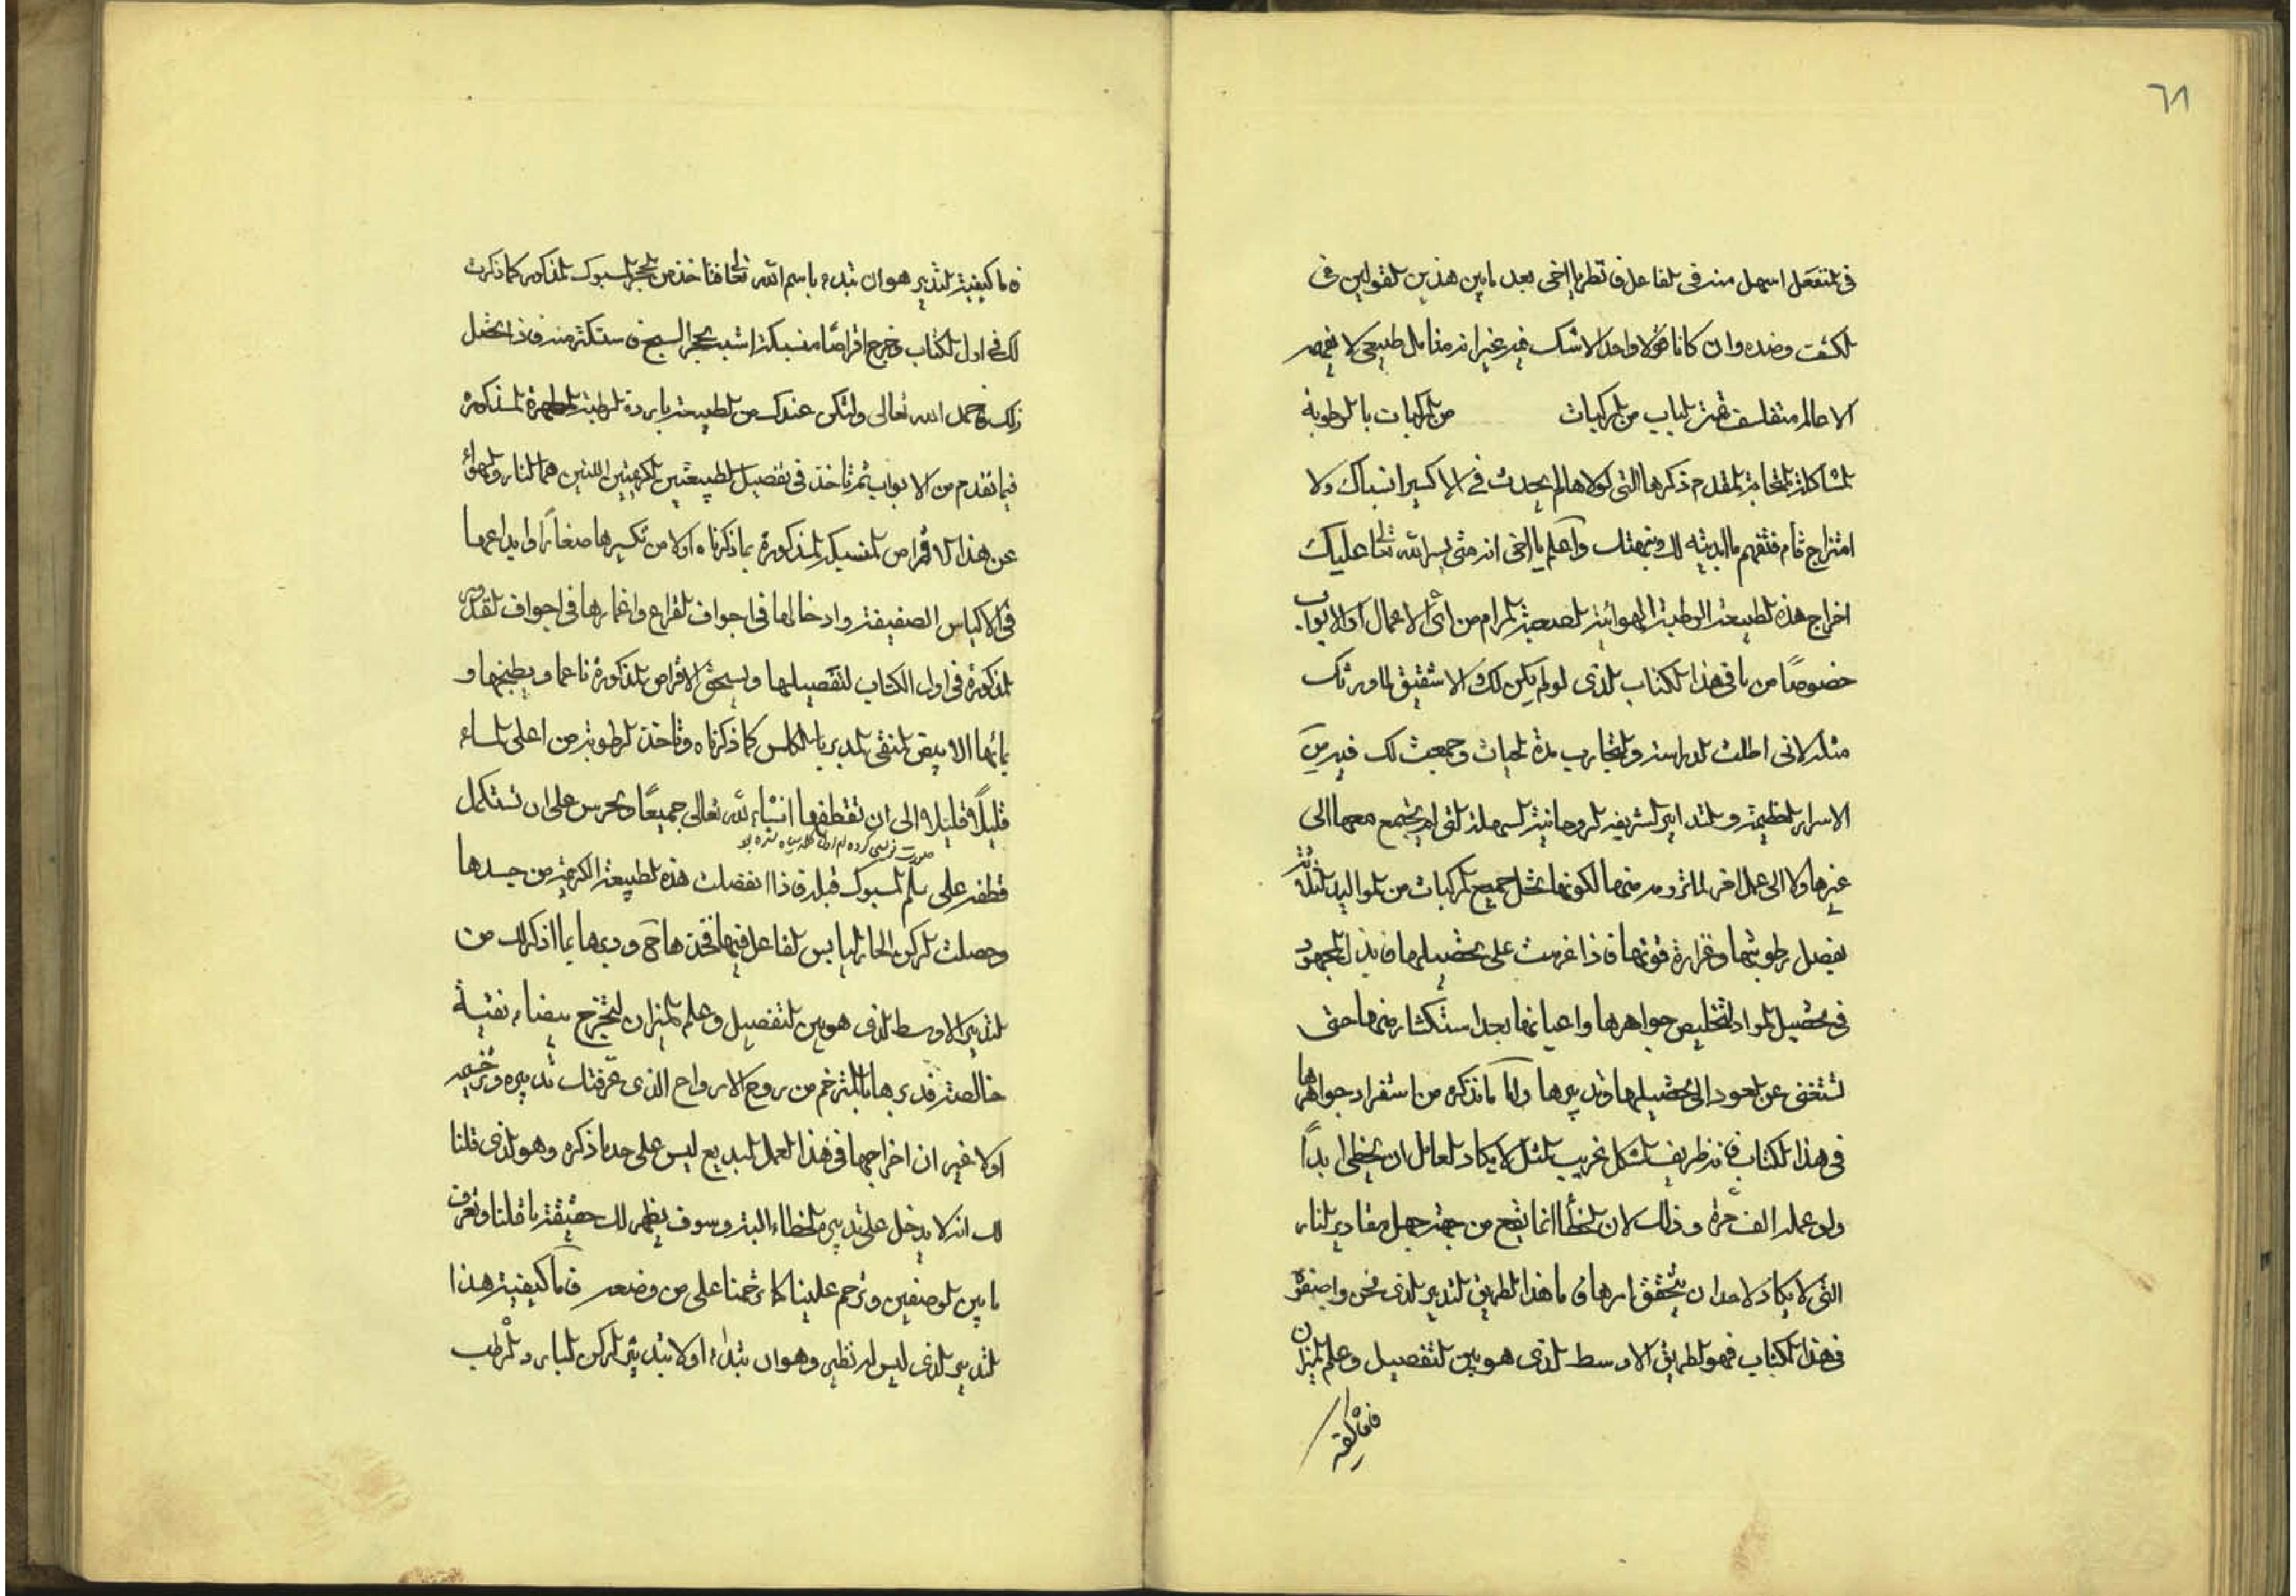 ٦٨
فى المنفعل اسهل منه فى الفاعل فانظر يا اخى بعد ما بين هذين القولين فى
الكثف وضده وان كانا قولا واحدا لا شك فيه غير انه مقابل طبيعى لا يفهمه
الا عالم متفلسف الباب من المركبات من المركبات بالرطوبة
المشاكلة المتحابة المقدم ذكرها التى لولاها لم يحدث فى الاكسير انسباك ولا
امتزاج تام فتفهم ما ابديته لك ونبهتك واعلم يا اخى انه متى يسر الله تعالى عليك
اخراج هذه الطبيعة الرطبة الهوائية الصعبة المرام من اى الاعمال او الابواب
خصوصًا من باقى هذا الكتاب الذى لو لم يكن لك الا شقيق لما ورثك
مثله لانى اطلت الدراسة والتجارب مدة الحيات وجمعت لك فيه من
الاسرار العظيمة والتدابير الشريفه الروحانية السهلة التى لم يجتمع معها الى
غيرها ولا الى عمل اخر لما تروم منها لكونها تحل جميع المركبات من المواليد الثلثة
بفضل رطوبتها وغزارة قوتها فاذا عزمت على تحصيلها فابذل المجهود
فى تحصيل المواد لتخليص جواهرها واعيانها بعد استكثار منها حتى
تستغنى عن العود الى تحصيلها وتدبيرها واما ما نذكره من استفراد جواهرها
فى هذا الكتاب فانه ظريف الشكل غريب المثل لا يكاد العامل ان يخطى ابدًا
ولو عمله الف مرة وذلك لان الخطأ انما يقع من جهة جهل مقادير النار
التى لا يكاد لاحد ان يتحقق امرها فاما هذا الطريق التدبير الذى نحن واصفوه
فى هذا الكتاب فهو الطريق الاوسط الذى هو بين التفصيل وعلم الميزان
فاما كيفية
فاما كيفية التدبير هو ان تبدء باسم الله تعالى فتاخذ من الحجر المسبوك المذكور كما ذكرت
لك فى اول الكتاب وخرج اقراصًا منسبكة اشبه بحجر السبج فاستكثر منه فاذا تحصل
ذلك فاحمد الله تعالى وليكن عندك من الطبيعة الباردة الرطبة المطهرة المذكوره
فيما تقدم من الابواب ثم تاخذ فى تفصيل الطبيعتين الكريمتين اللتين هما النار والهواء
عن هذا الاقراص المنسبكة المذكورة بما ذكرناه اولا من تكسيرها صغارًا وايداعها
فى الاكياس الصفيقة وادخالها فى اجواف القراع واغمارها فى اجواف القدور
المذكورة فى اول الكتاب لتفصيلها ويسحق الاقراص المذكورة ناعما ويطبخها و
بمائها الابيض المنقى المدبر بالكلس كما ذكرناه وتاخذ الرطوبة من اعلى الماء
قليلًا قليلًا الى ان تقتطفها انشاء الله تعالى جميعًا وتحرس على ان تستكمل
قطفه على سلم المسبوك قبله فاذا انفصلت هذه الطبيعة الكريمة من جسدها
وحصلت الركن الحار اليابس الفاعل فيها فخذها ودبرها بما اذكرلك من
التدبير الاوسط الذى هو بين التفصيل وعلم الميزان لتخرج بيضاء نقية
خالصة فدبرها من روح الارواح الذى عرفتك تدبيره وترخيمه
اولا غير ان اخراجها فى هذا العمل البديع ليس على حد ما ذكره وهو الذى قلنا
لك انه لا يدخل على تدبيره الخطاء البتة وسوف يظهر لك حقيقة ما قلنا وتعرف
ما بين الوصفين وترحم علينا كما ترحمنا على من وضعه فاما كيفية هذا
التدبير الذى ليس له نظير وهو ان تبدء اولا بتدبير الركن البارد الرطب